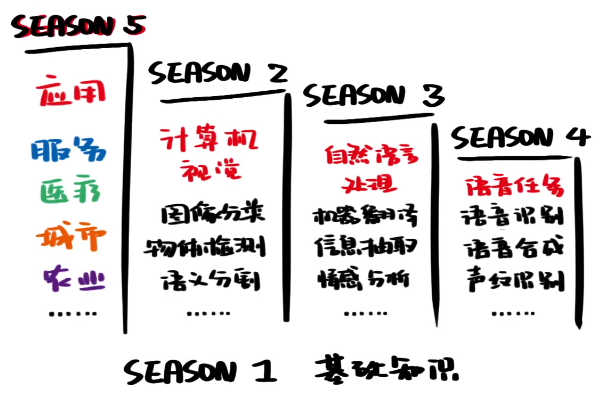 SEASON 5
应用
服务
医疗
城市
农业
......
SEASON 2
计算机
视觉
图像分类
物体检测
语义分割
......
SEASON 3
自然语言
处理
机器翻译
信息抽取
情感分析
......
SEASON 4
语音任务
语音识别
语音合成
声纹识别
......
SEASON 1 基础知识